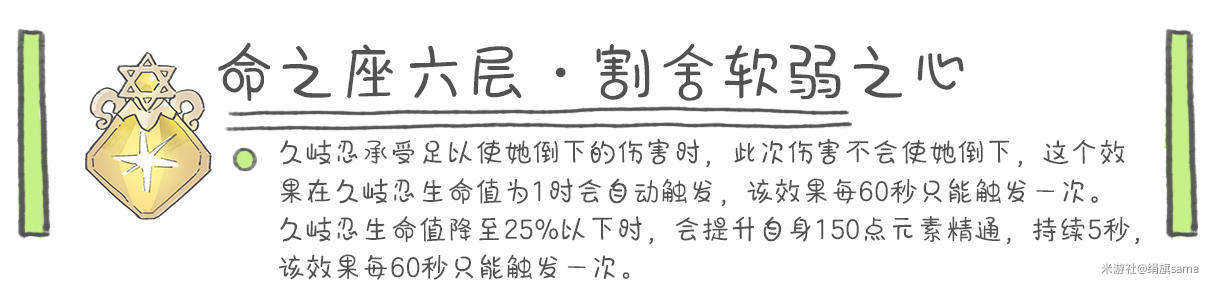 命之座六层·割舍软弱之心
久岐忍承受足以使她倒下的伤害时，此次伤害不会使她倒下，这个效
果在久岐忍生命值为1时会自动触发，该效果每60秒只能触发一次。
久岐忍生命值降至25%以下时，会提升自身150点元素精通，持续5秒，
该效果每60秒只能触发一次。
米游社@绢旗sama